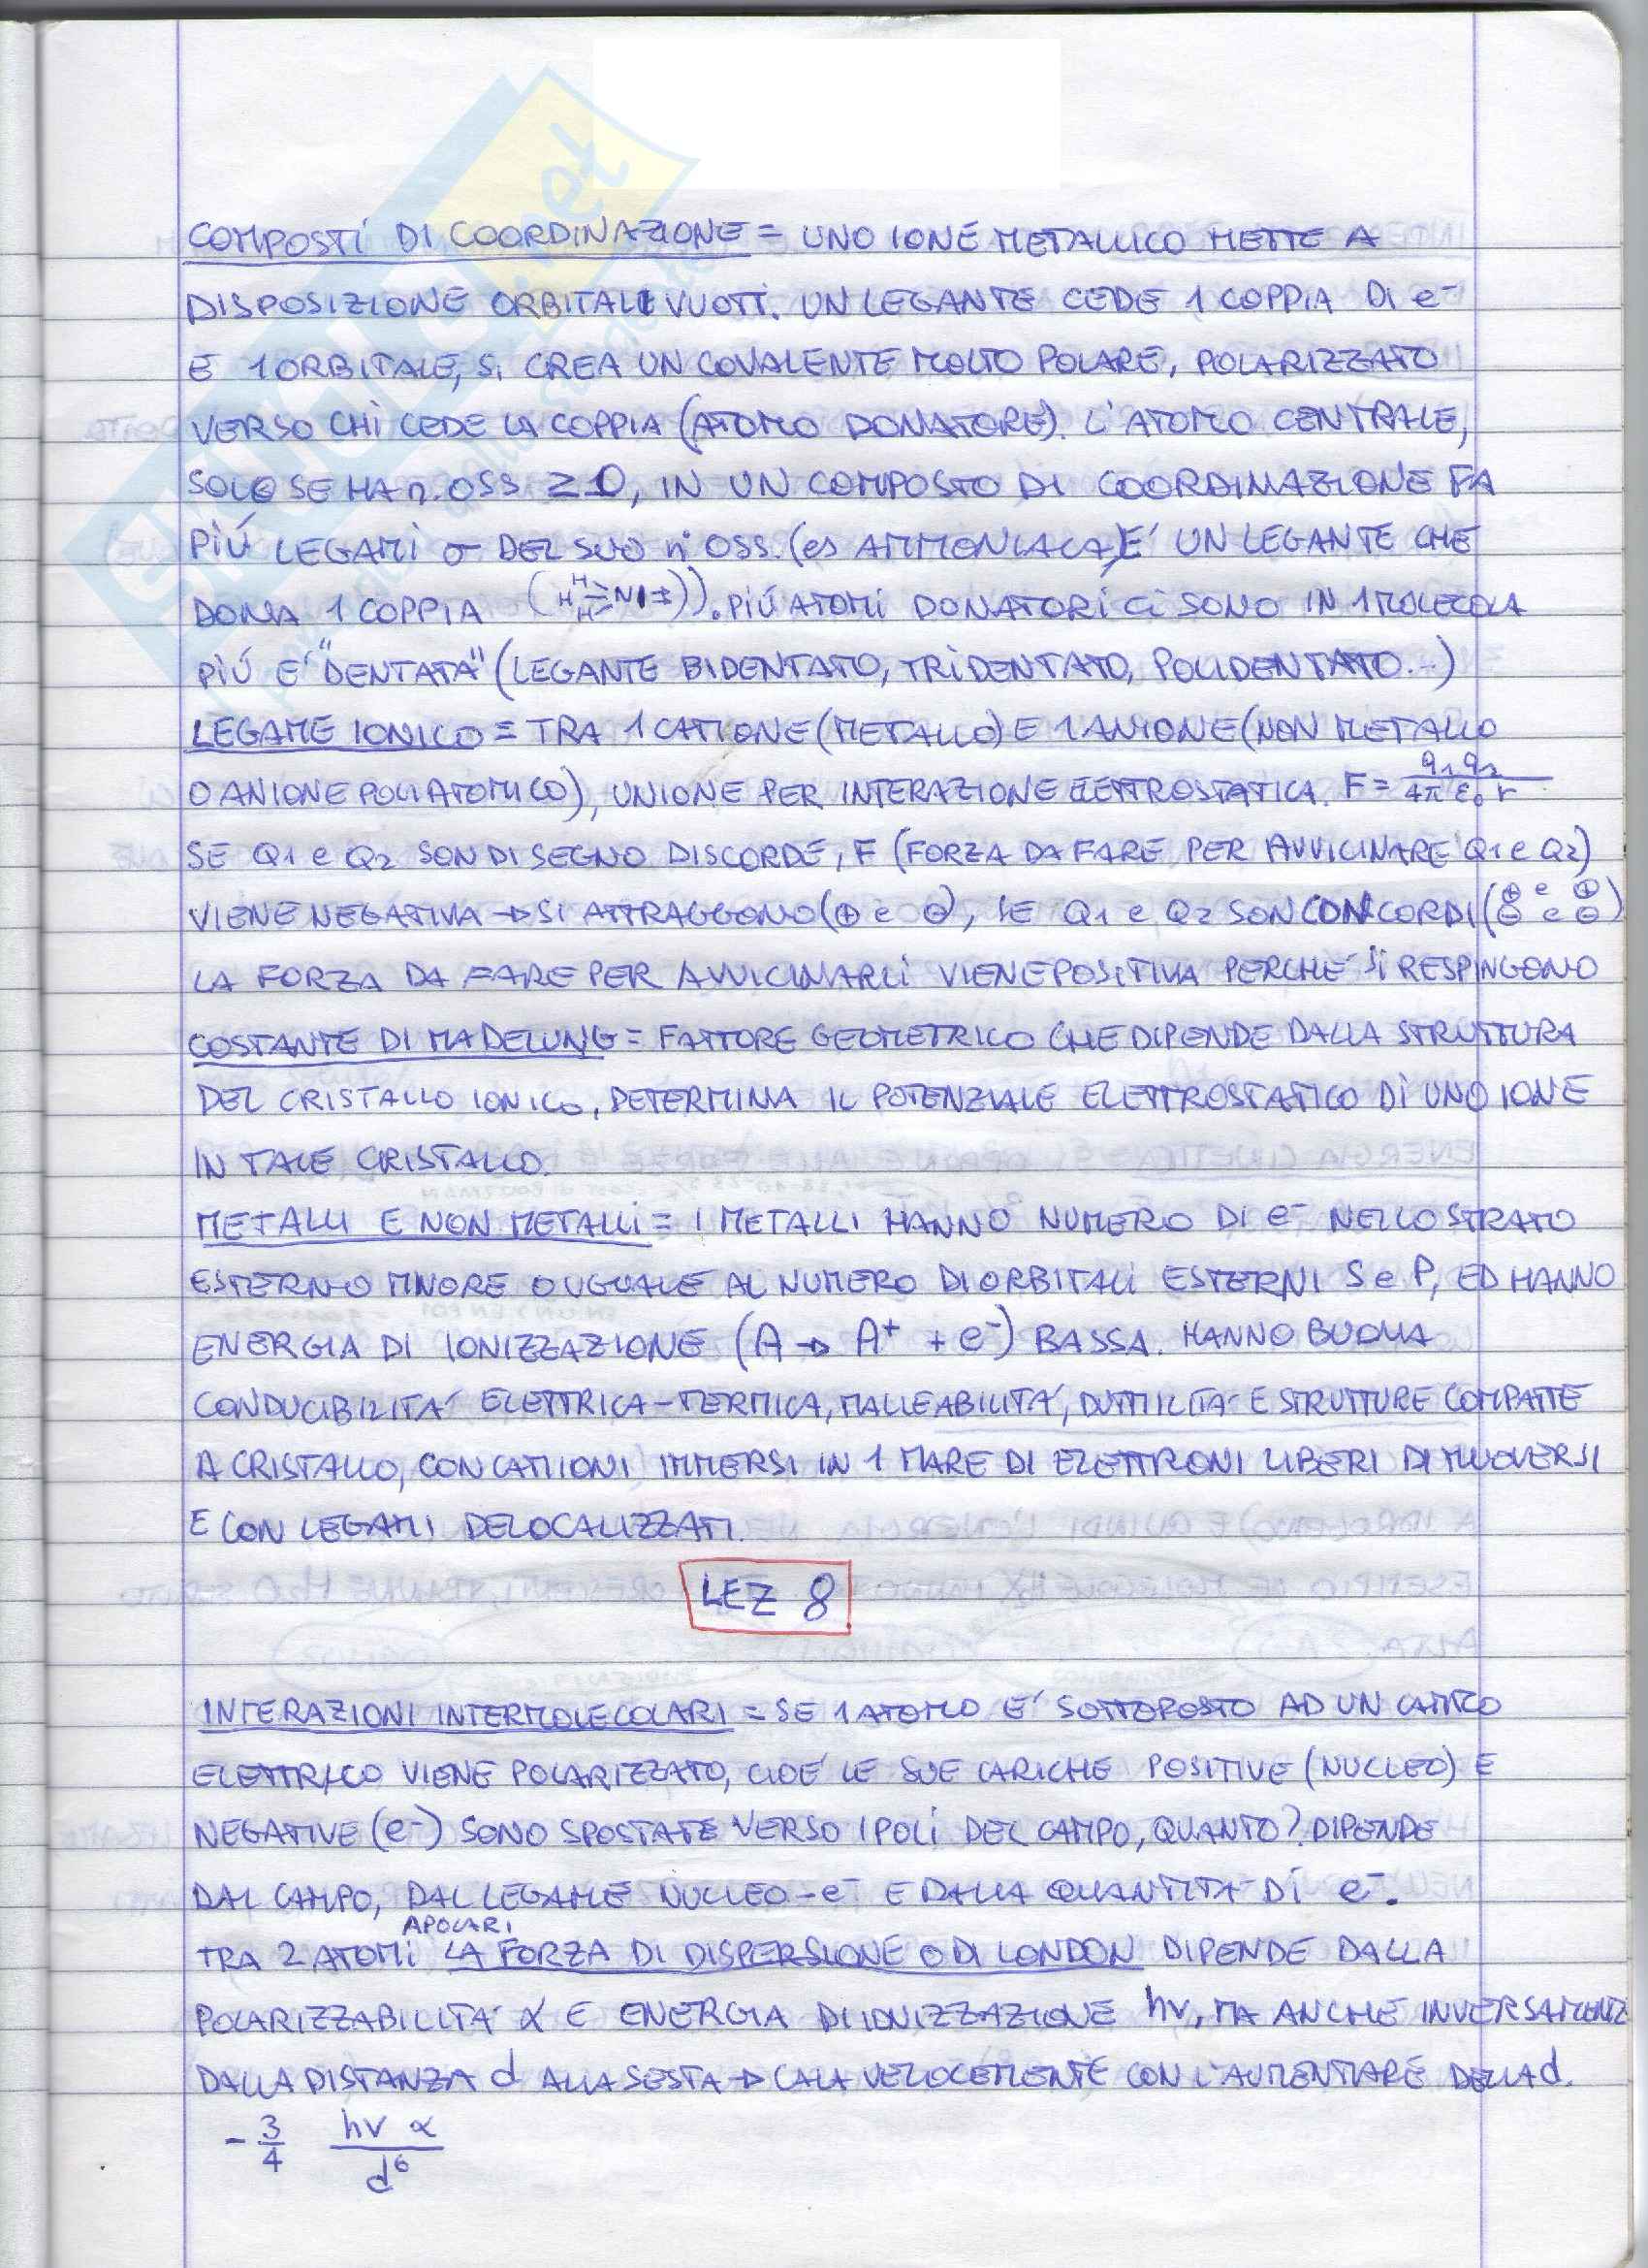 COMPOSTI DI COORDINAZIONE = UNO IONE METALLICO METTE A
DISPOSIZIONE ORBITALI VUOTI. UN LEGANTE CEDE 1 COPPIA DI e⁻
E 1 ORBITALE, SI CREA UN COVALENTE MOLTO POLARE, POLARIZZATO
VERSO CHI CEDE LA COPPIA (ATOMO DONATORE). L'ATOMO CENTRALE,
SOLO SE HA n. OSS ≥ 0, IN UN COMPOSTO DI COORDINAZIONE FA
PIÚ LEGAMI σ DEL SUO n° OSS. (es AMMONIACA, E' UN LEGANTE CHE
DONA 1 COPPIA (H H H N)). PIÚ ATOMI DONATORI CI SONO IN 1 MOLECOLA
PIÚ E' "DENTATA" (LEGANTE BIDENTATO, TRIDENTATO, POLIDENTATO...)
LEGAME IONICO = TRA 1 CATIONE (METALLO) E 1 ANIONE (NON METALLO
O ANIONE POLIATOMICO), UNIONE PER INTERAZIONE ELETTROSTATICA. F = q₁q₂ / 4π ε₀ r
SE Q1 e Q2 SON DI SEGNO DISCORDE, F (FORZA DA FARE PER AVVICINARE Q1 e Q2)
VIENE NEGATIVA → SI ATTRAGGONO (⊕ e ⊖), SE Q1 e Q2 SON CONCORDI (⊕ e ⊕ ⊖ e ⊖)
LA FORZA DA FARE PER AVVICINARLI VIENE POSITIVA PERCHE' SI RESPINGONO
COSTANTE DI MADELUNG = FATTORE GEOMETRICO CHE DIPENDE DALLA STRUTTURA
DEL CRISTALLO IONICO, DETERMINA IL POTENZIALE ELETTROSTATICO DI UNO IONE
IN TALE CRISTALLO.
METALLI E NON METALLI = I METALLI HANNO NUMERO DI e⁻ NELLO STRATO
ESTERNO MINORE O UGUALE AL NUMERO DI ORBITALI ESTERNI S e P, ED HANNO
ENERGIA DI IONIZZAZIONE (A → A⁺ + e⁻) BASSA. HANNO BUONA
CONDUCIBILITA' ELETTRICA-TERMICA, MALLEABILITA', DUTTILITA' E STRUTTURE COMPATTE
A CRISTALLO, CON CATIONI IMMERSI IN 1 MARE DI ELETTRONI LIBERI DI MUOVERSI
E CON LEGAMI DELOCALIZZATI.
LEZ 8
INTERAZIONI INTERMOLECOLARI = SE 1 ATOMO E' SOTTOPOSTO AD UN CAMPO
ELETTRICO VIENE POLARIZZATO, CIOE' LE SUE CARICHE POSITIVE (NUCLEO) E
NEGATIVE (e⁻) SONO SPOSTATE VERSO I POLI DEL CAMPO, QUANTO? DIPENDE
DAL CAMPO, DAL LEGAME NUCLEO-e⁻ E DALLA QUANTITA' DI e⁻.
APOLARI
TRA 2 ATOMI LA FORZA DI DISPERSIONE O DI LONDON DIPENDE DALLA
POLARIZZABILITA' α E ENERGIA DI IONIZZAZIONE hν, MA ANCHE INVERSAMENTE
DALLA DISTANZA d ALLA SESTA → CALA VELOCEMENTE CON L'AUMENTARE DELLA d.
- 3/4 hν α / d⁶